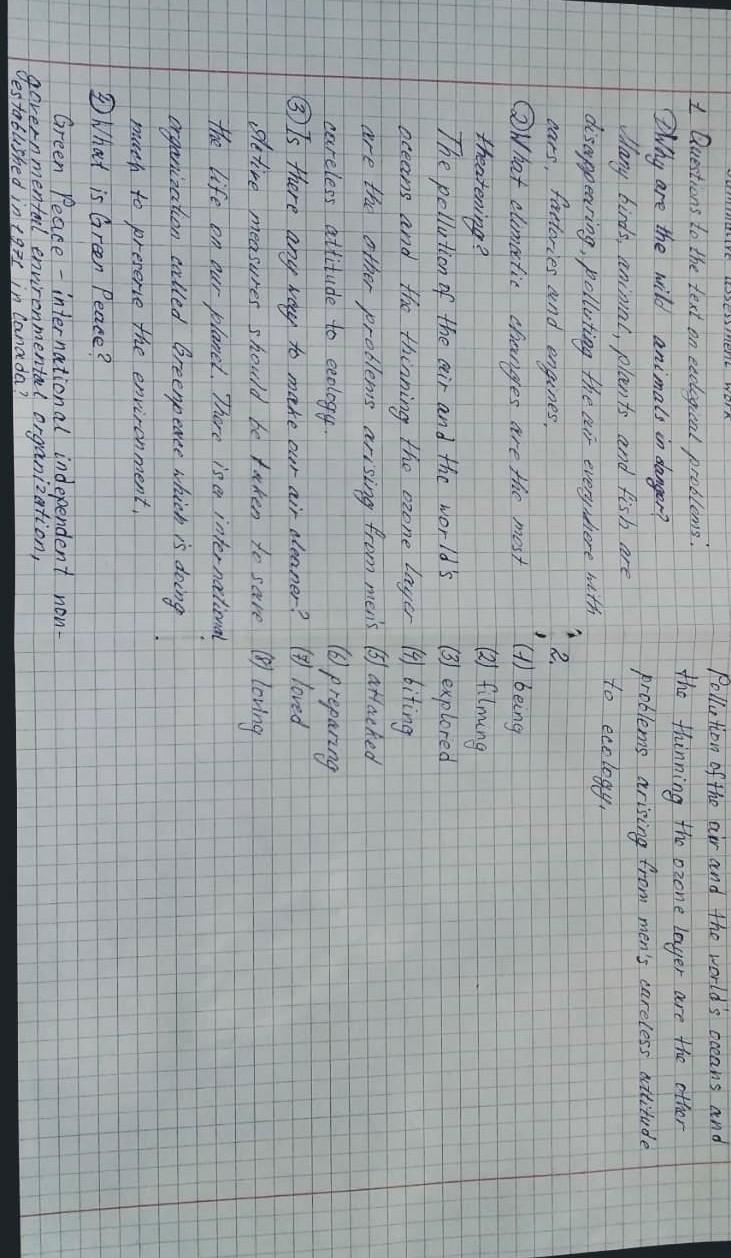 Summative assessment work
1 Questions to the text on ecological problems.
①Why are the wild animals in danger?
Many birds, animal, plants and fish are
disappearing, polluting the air everywhere with
cars, factories and engines.
②What climatic changes are the most
threatening?
The pollution of the air and the world's
oceans and the thinning the ozone layer
are the other problems arising from men's
careless attitude to ecology.
③Is there any way to make our air cleaner?
Active measures should be taken to save
the life on our planet. There is a international
organization called Greenpeace which is doing
much to preserve the environment.
④What is Green Peace?
Green Peace - international independent non-
governmental environmental organization,
established in 1971 in Canada?
Pollution of the air and the world's oceans and
the thinning the ozone layer are the other
problems arising from men's careless attitude
to ecology.
2.
(1) being
(2) filming
(3) explored
(4) biting
(5) attacked
(6) preparing
(7) loved
(8) loving